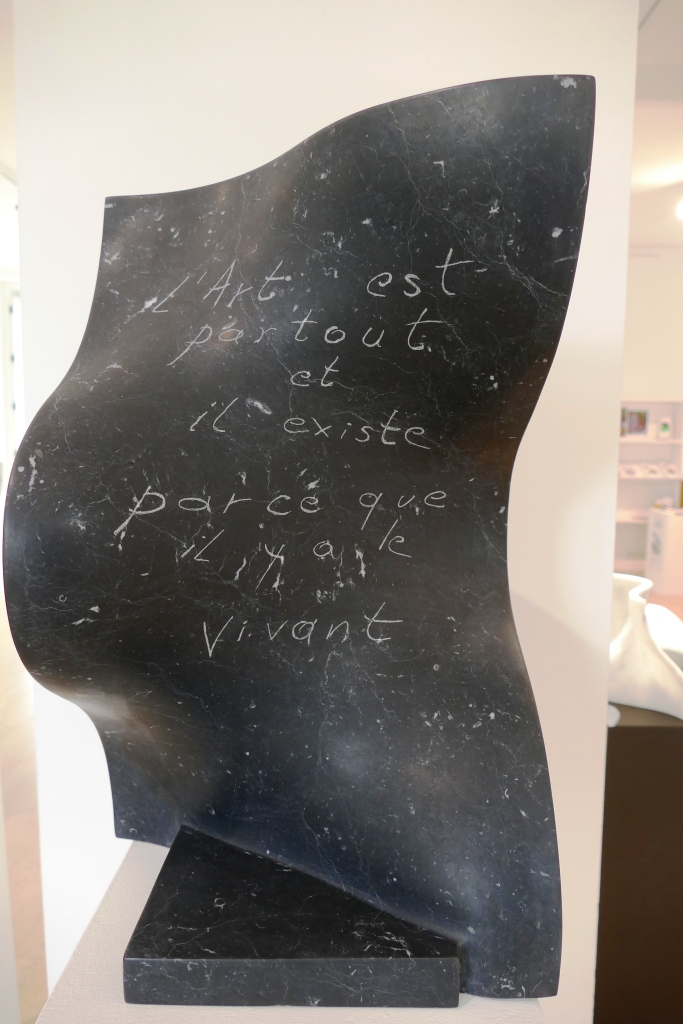 l'Art est
partout
et
il existe
parce que
il y a le
vivant